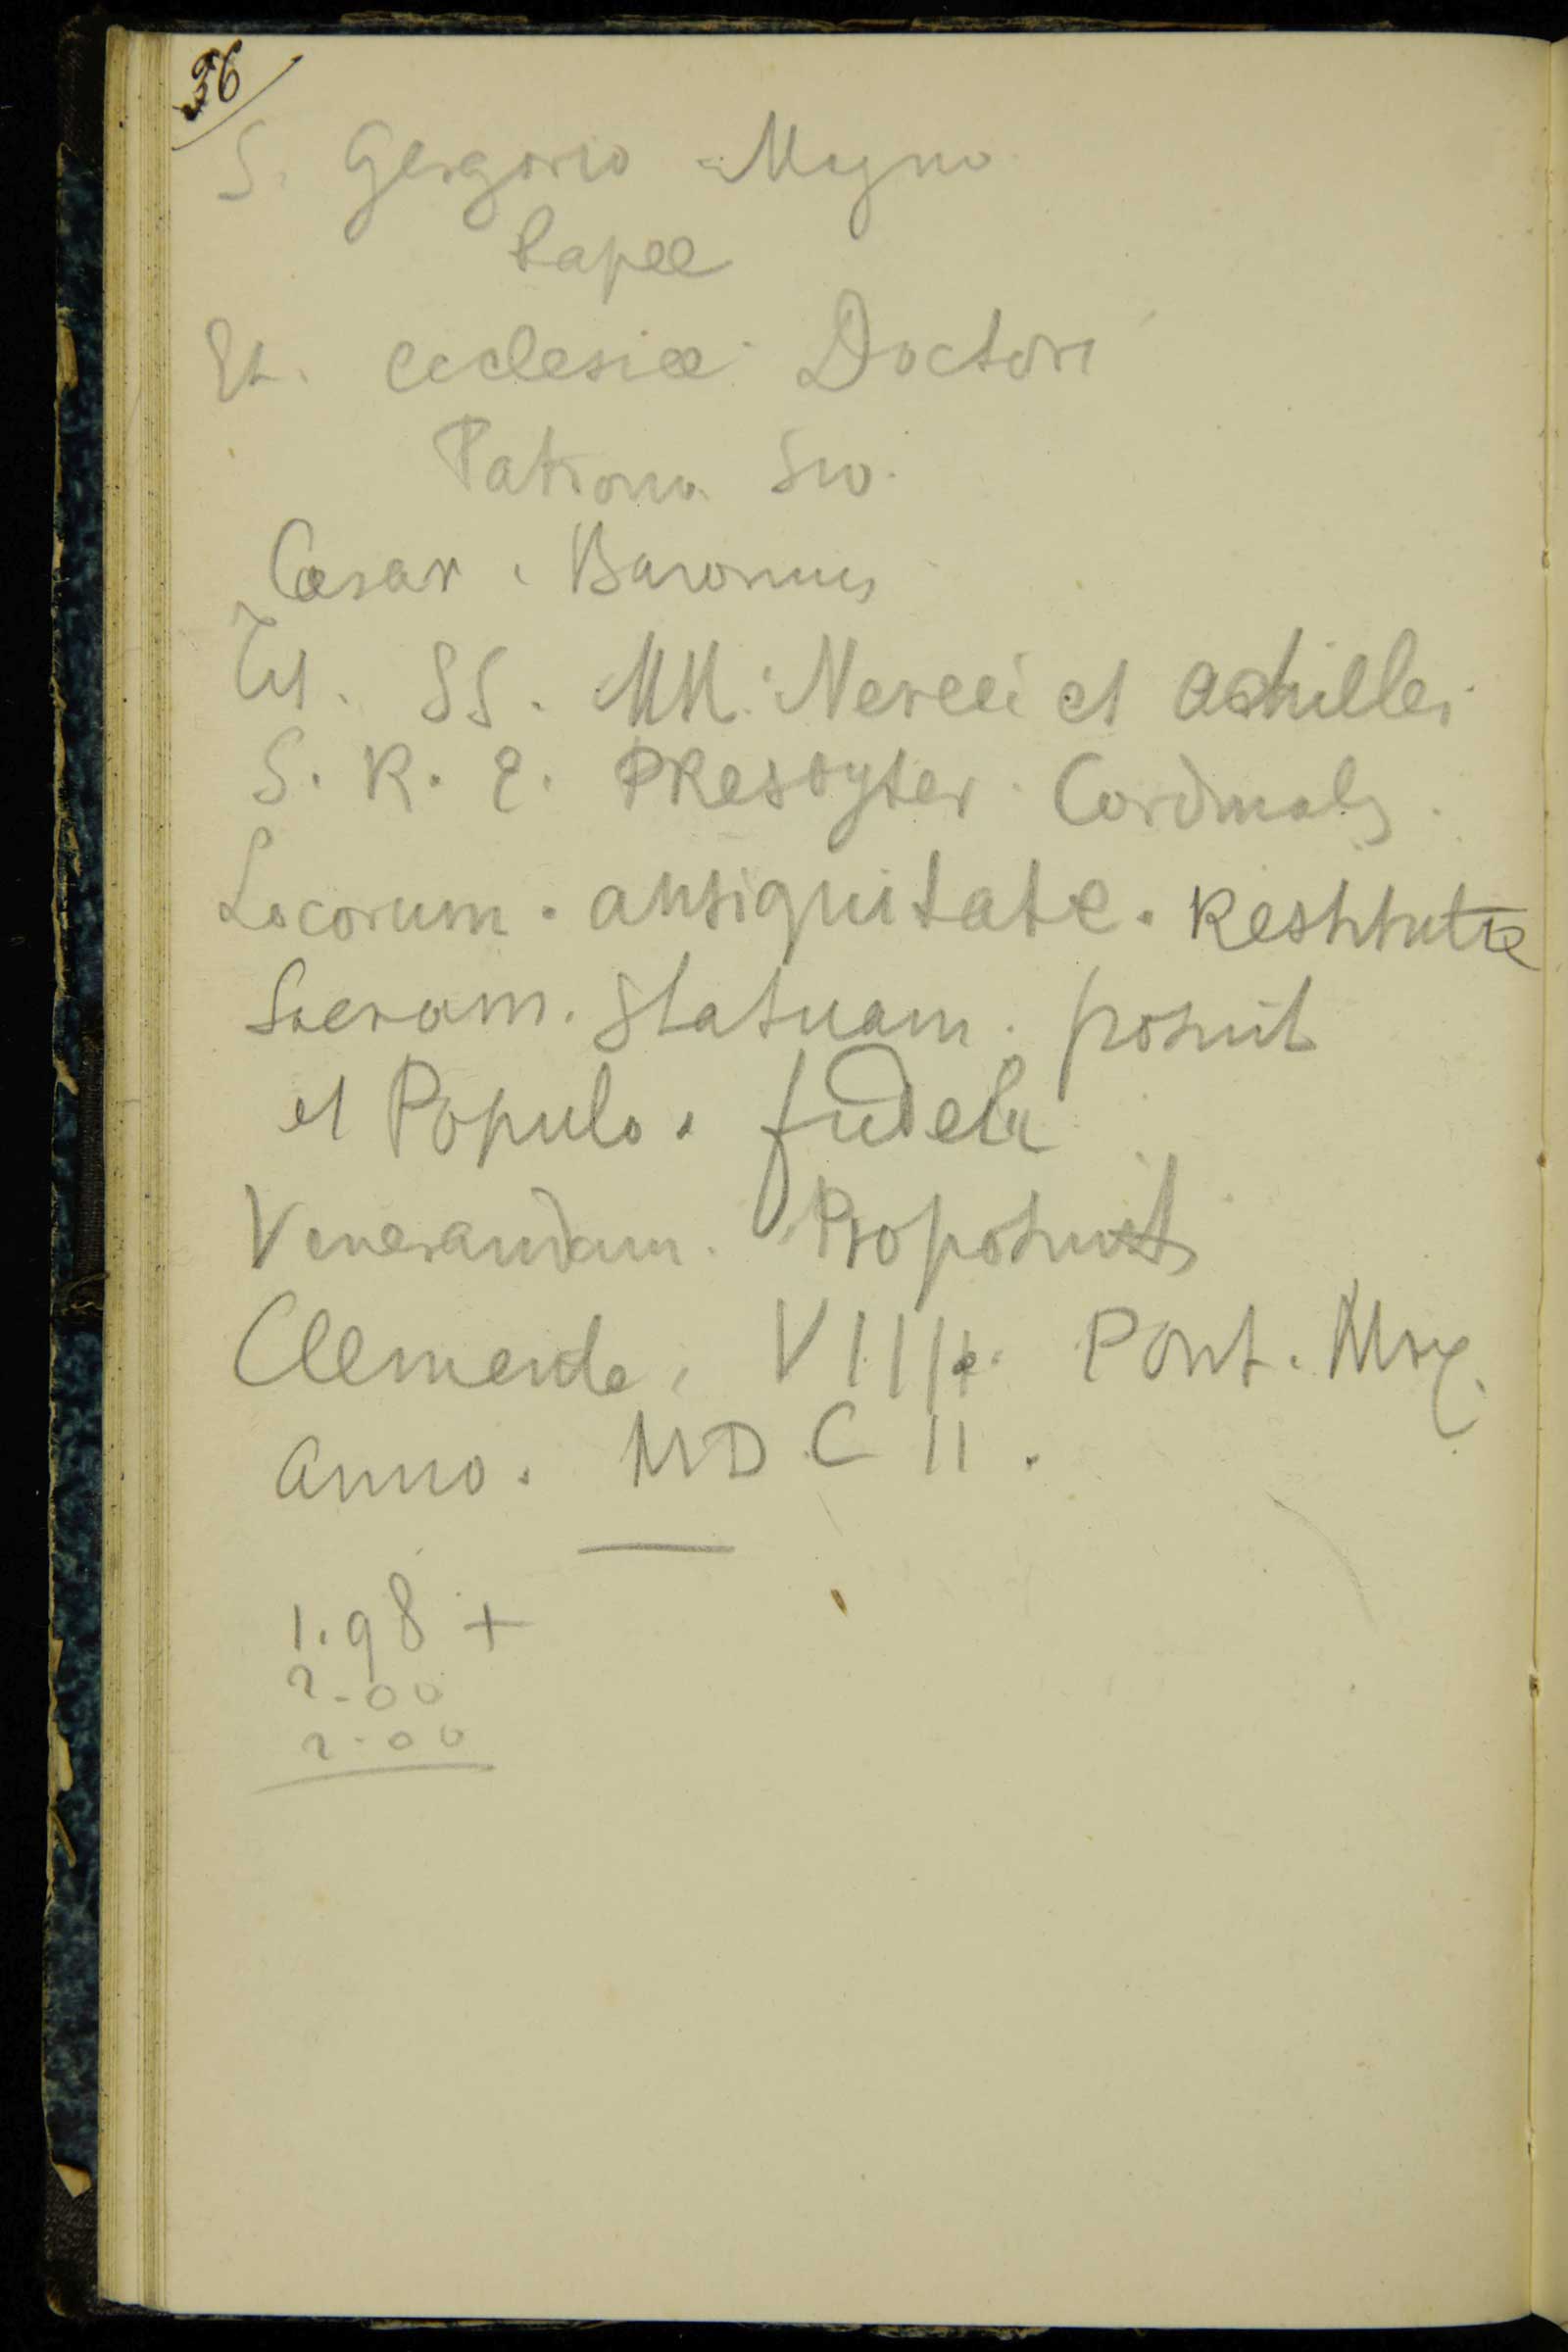 36
S. Gergorio Magno
Papæ
Et. Ecclesiæ Doctori
Patrono Suo.
Cæsar. Baronius
Tit. SS. MM. Nerei et Achillei
S. R. E. PResbyter. Cardinalis.
Locorum. antiquitate. Restituta
Sacram. Statuam. posuit
et Populo. fideli
Venerandam. Proposuit
Clemente. VIII. Pont. Max.
anno. MDCII.
1.98 +
2.00
2.00